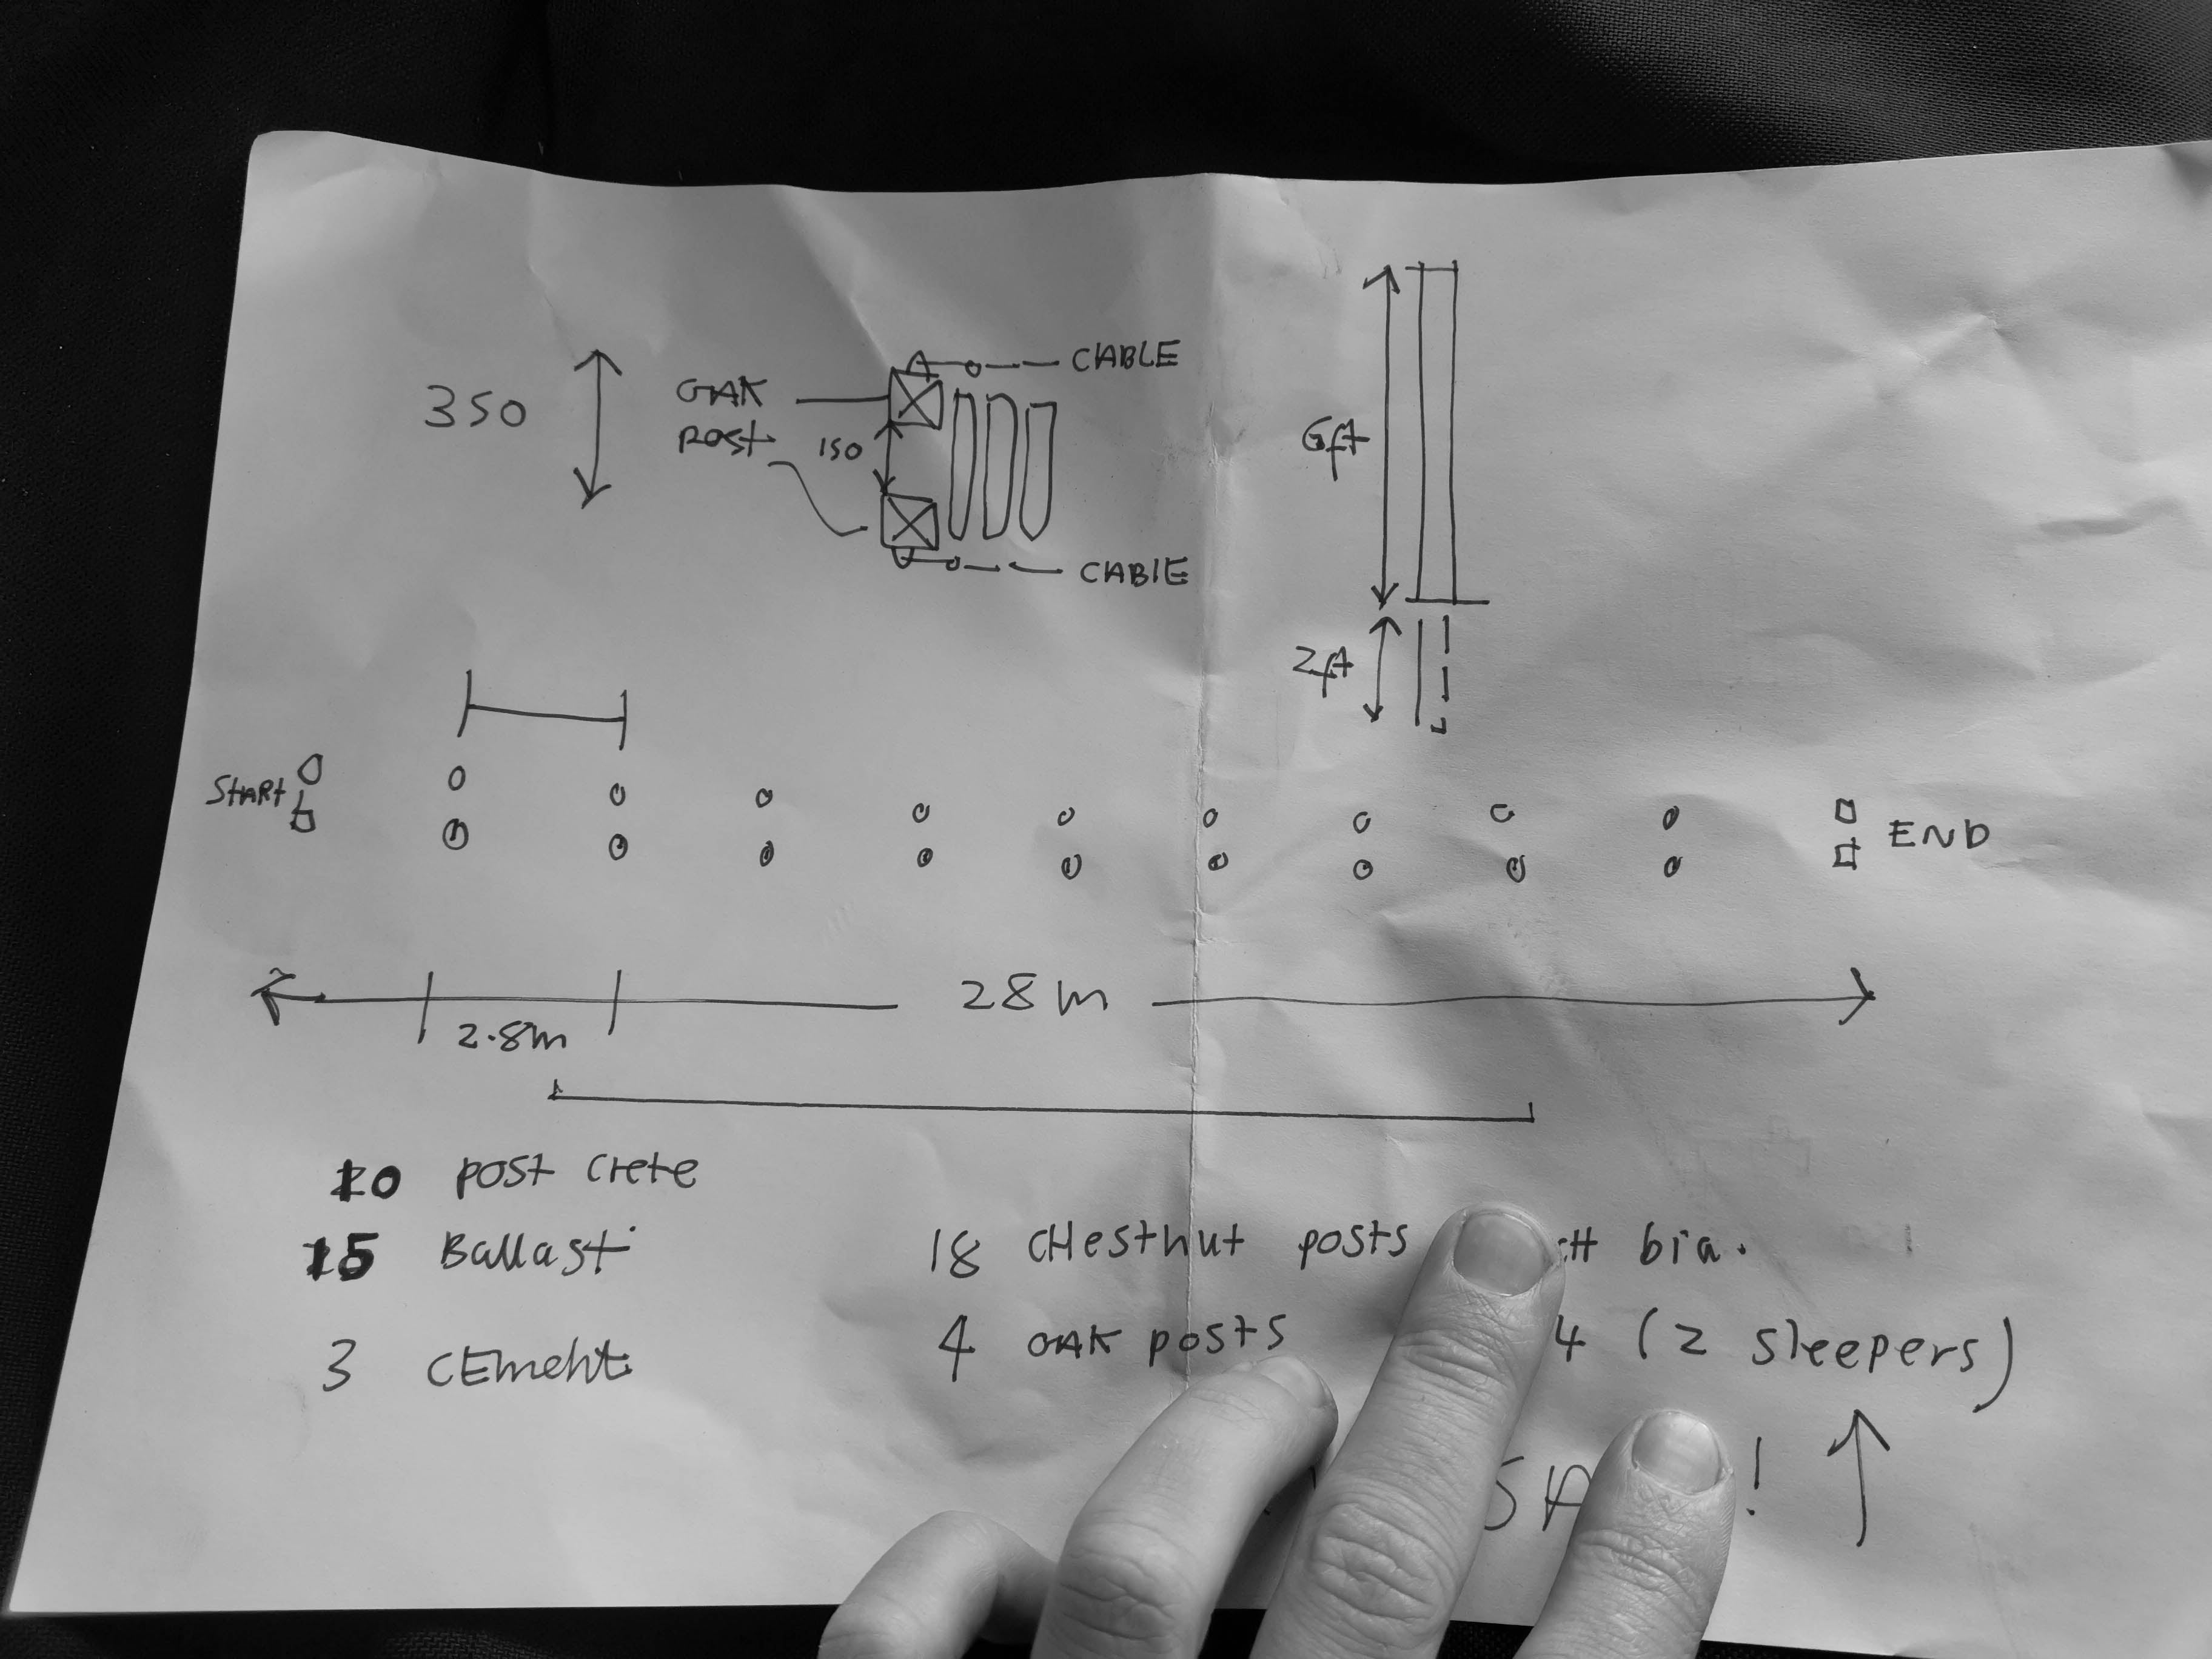 CABLE
OAK
POST
350
150
CABlE
6ft
2ft
START
END
28m
2.8m
10 post crete
15 Ballast
3 CEment
18 CHestnut posts bia.
4 OAK posts 4 (2 sleepers)
!